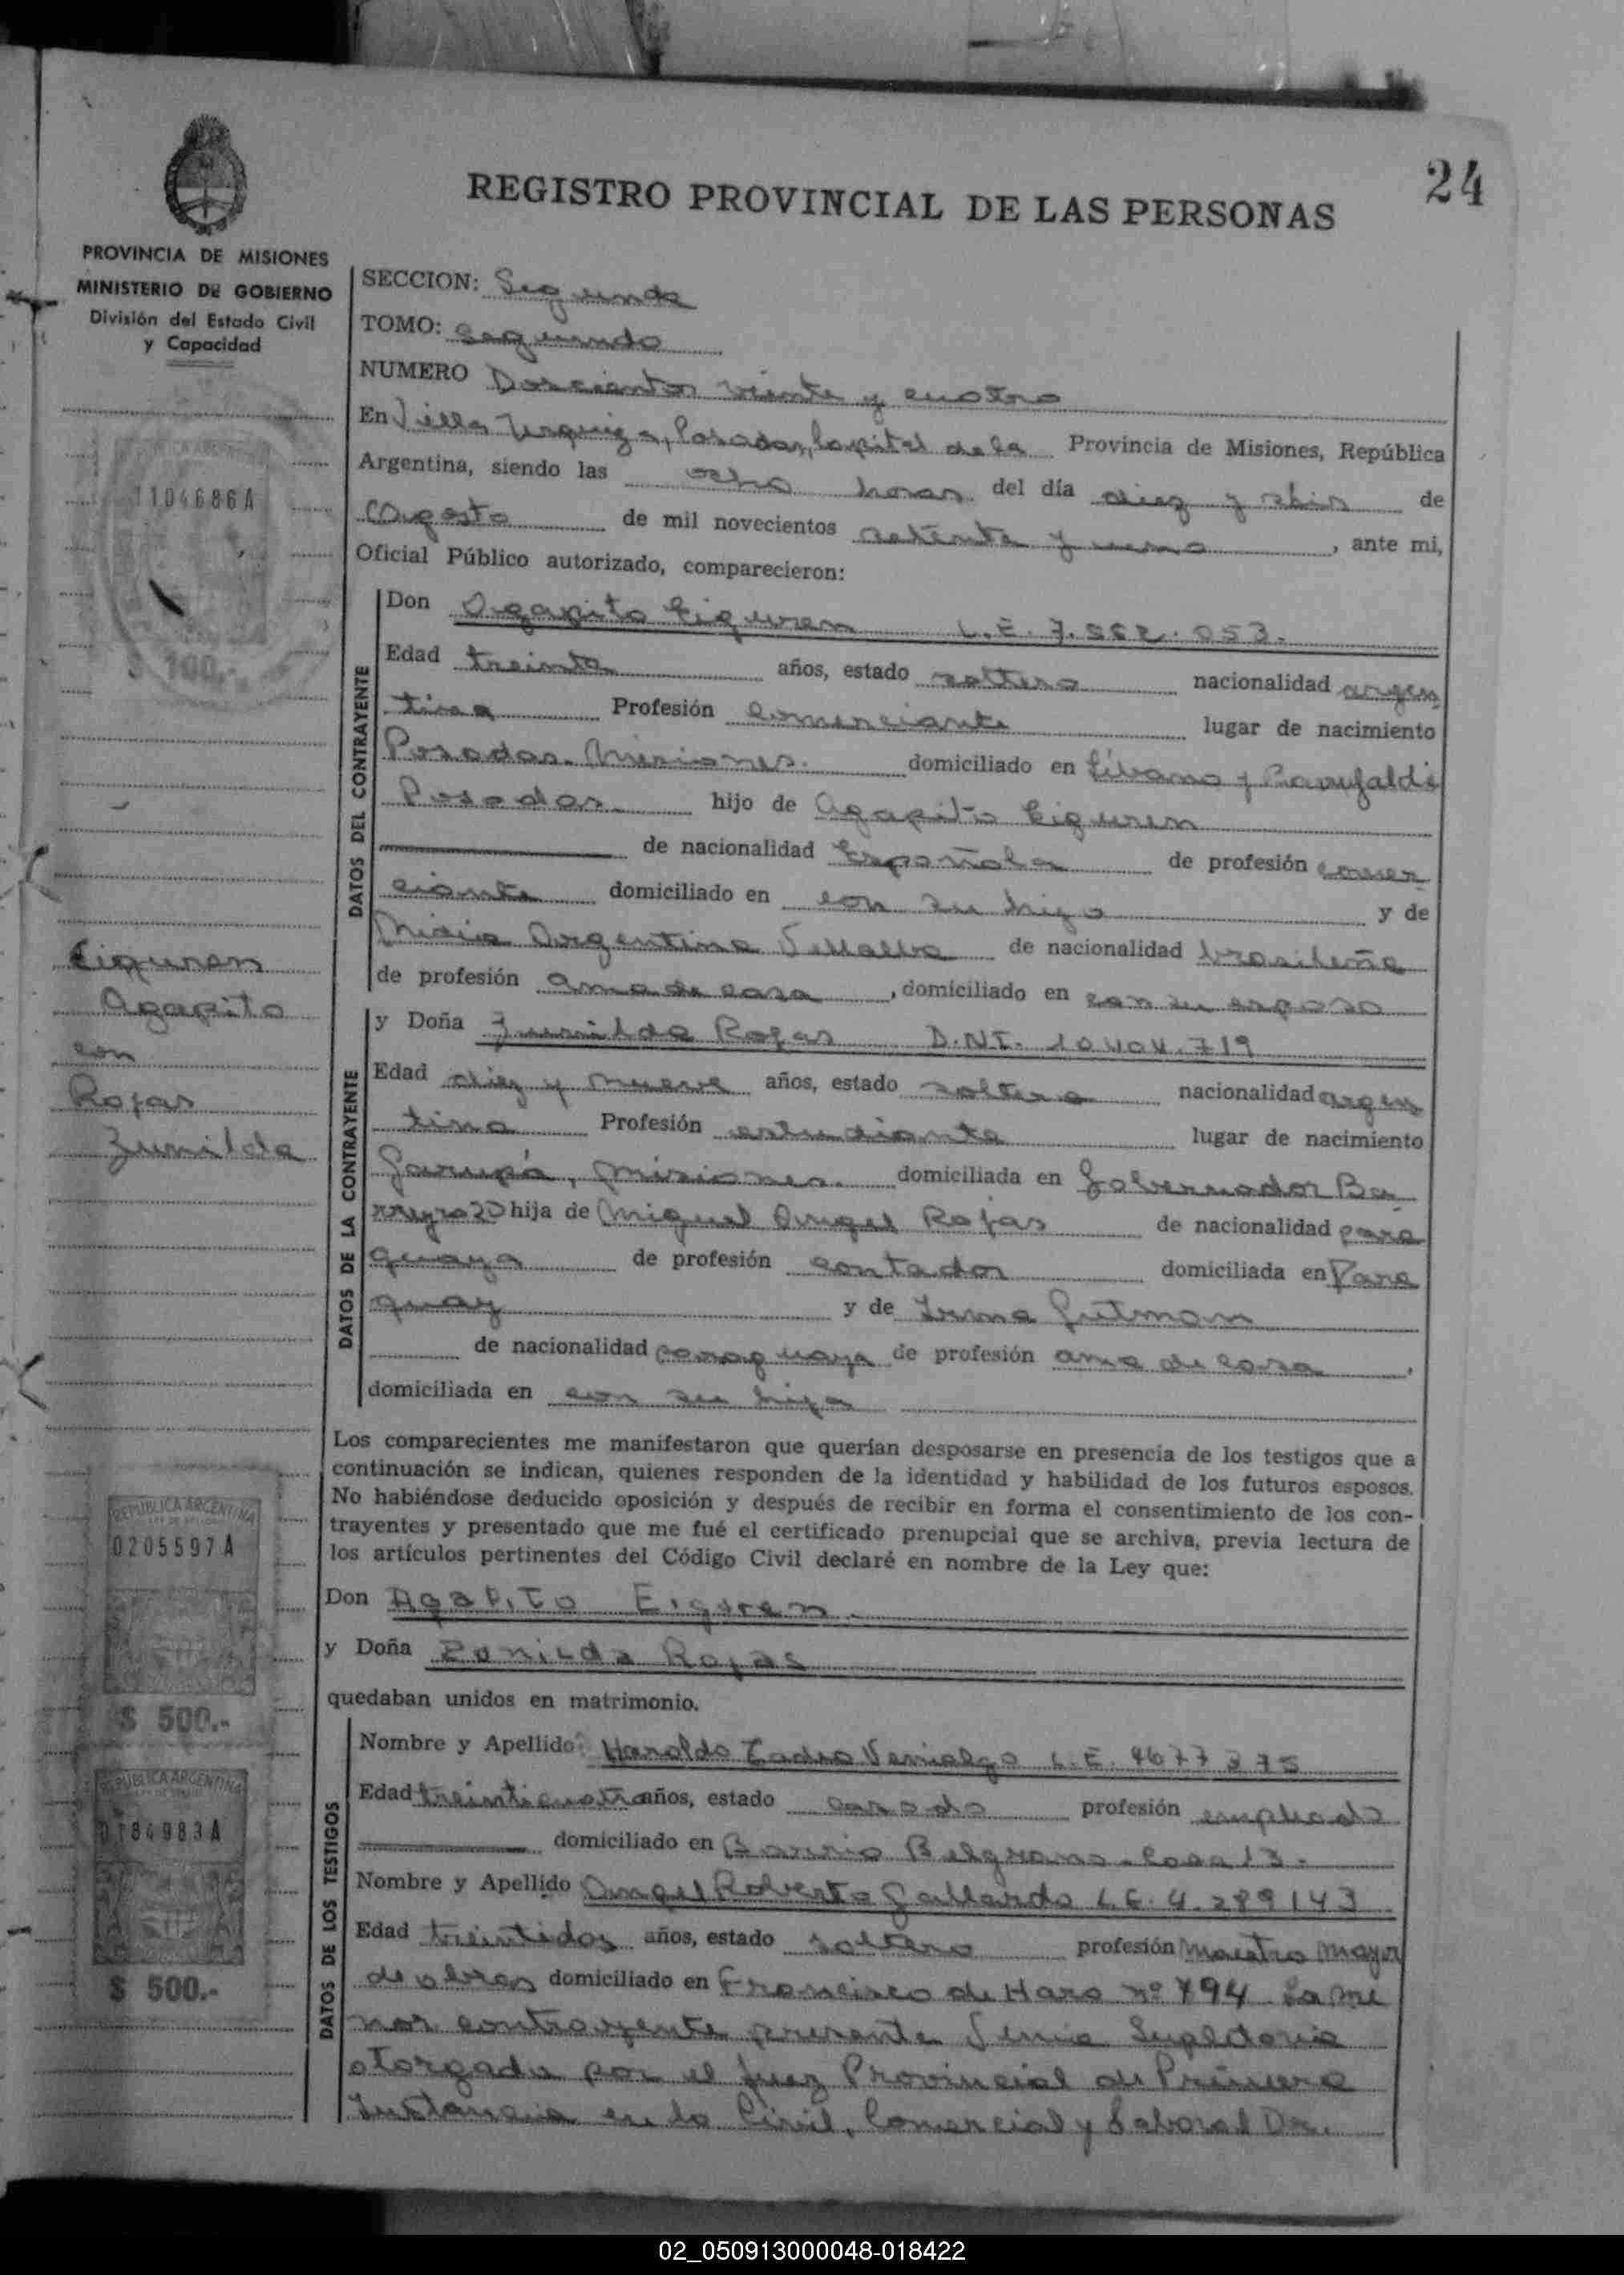 24
REGISTRO PROVINCIAL DE LAS PERSONAS
PROVINCIA DE MISIONES
MINISTERIO DE GOBIERNO
División del Estado Civil
y Capacidad
SECCION: Segunda
TOMO: segundo
NUMERO Doscientos veinte y cuatro
En Villa Urquiza, Posadas, Capital de la Provincia de Misiones, República
Argentina, siendo las ocho horas del día diez y seis de
Agosto de mil novecientos setenta y uno, ante mi,
Oficial Público autorizado, comparecieron:
DATOS DEL CONTRAYENTE
Don Agapito Eiguren L.E. 7.562.053.
Edad treinta años, estado soltero nacionalidad argen
tina Profesión comerciante lugar de nacimiento
Posadas. Misiones. domiciliado en Líbano y Garufaldi
Posadas hijo de Agapito Eiguren
de nacionalidad Española de profesión comer
ciante domiciliado en con su hijo y de
María Argentina Villalba de nacionalidad brasileña
de profesión ama de casa, domiciliado en con su esposo
DATOS DE LA CONTRAYENTE
y Doña Zunilda Rojas D.N.I. 10.404.719
Edad diez y nueve años, estado soltera nacionalidad argen
tina Profesión estudiante lugar de nacimiento
Garupá, Misiones. domiciliada en Gobernador Ba
rreyro 20 hija de Miguel Angel Rojas de nacionalidad para
guaya de profesión contador domiciliada en Para
guay y de Irma Gutman
de nacionalidad paraguaya de profesión ama de casa,
domiciliada en con su hija
Los comparecientes me manifestaron que querían desposarse en presencia de los testigos que a
continuación se indican, quienes responden de la identidad y habilidad de los futuros esposos.
No habiéndose deducido oposición y después de recibir en forma el consentimiento de los con-
trayentes y presentado que me fué el certificado prenupcial que se archiva, previa lectura de
los artículos pertinentes del Código Civil declaré en nombre de la Ley que:
Don Agapito Eiguren.
y Doña Zunilda Rojas
quedaban unidos en matrimonio.
DATOS DE LOS TESTIGOS
Nombre y Apellido: Haroldo Venialgo L.E. 4677375
Edad treinticuatro años, estado casado profesión empleado
domiciliado en Barrio Belgrano. Casa 13.
Nombre y Apellido Angel Roberto Gallardo L.E. 4.289143
Edad treintidos años, estado soltero profesión Maestro Mayor
de obras domiciliado en Francisco de Haro nº 794. La me
nor contrayente presenta Venia Supletoria
otorgada por el Juez Provincial de Primera
Instancia en lo Civil, Comercial y Laboral Dr.
Eiguren
Agapito
con
Rojas
Zunilda
REPUBLICA ARGENTINA
1104686A
$ 100.-
REPUBLICA ARGENTINA
0205597A
$ 500.-
REPUBLICA ARGENTINA
0184983A
$ 500.-
02_050913000048-018422